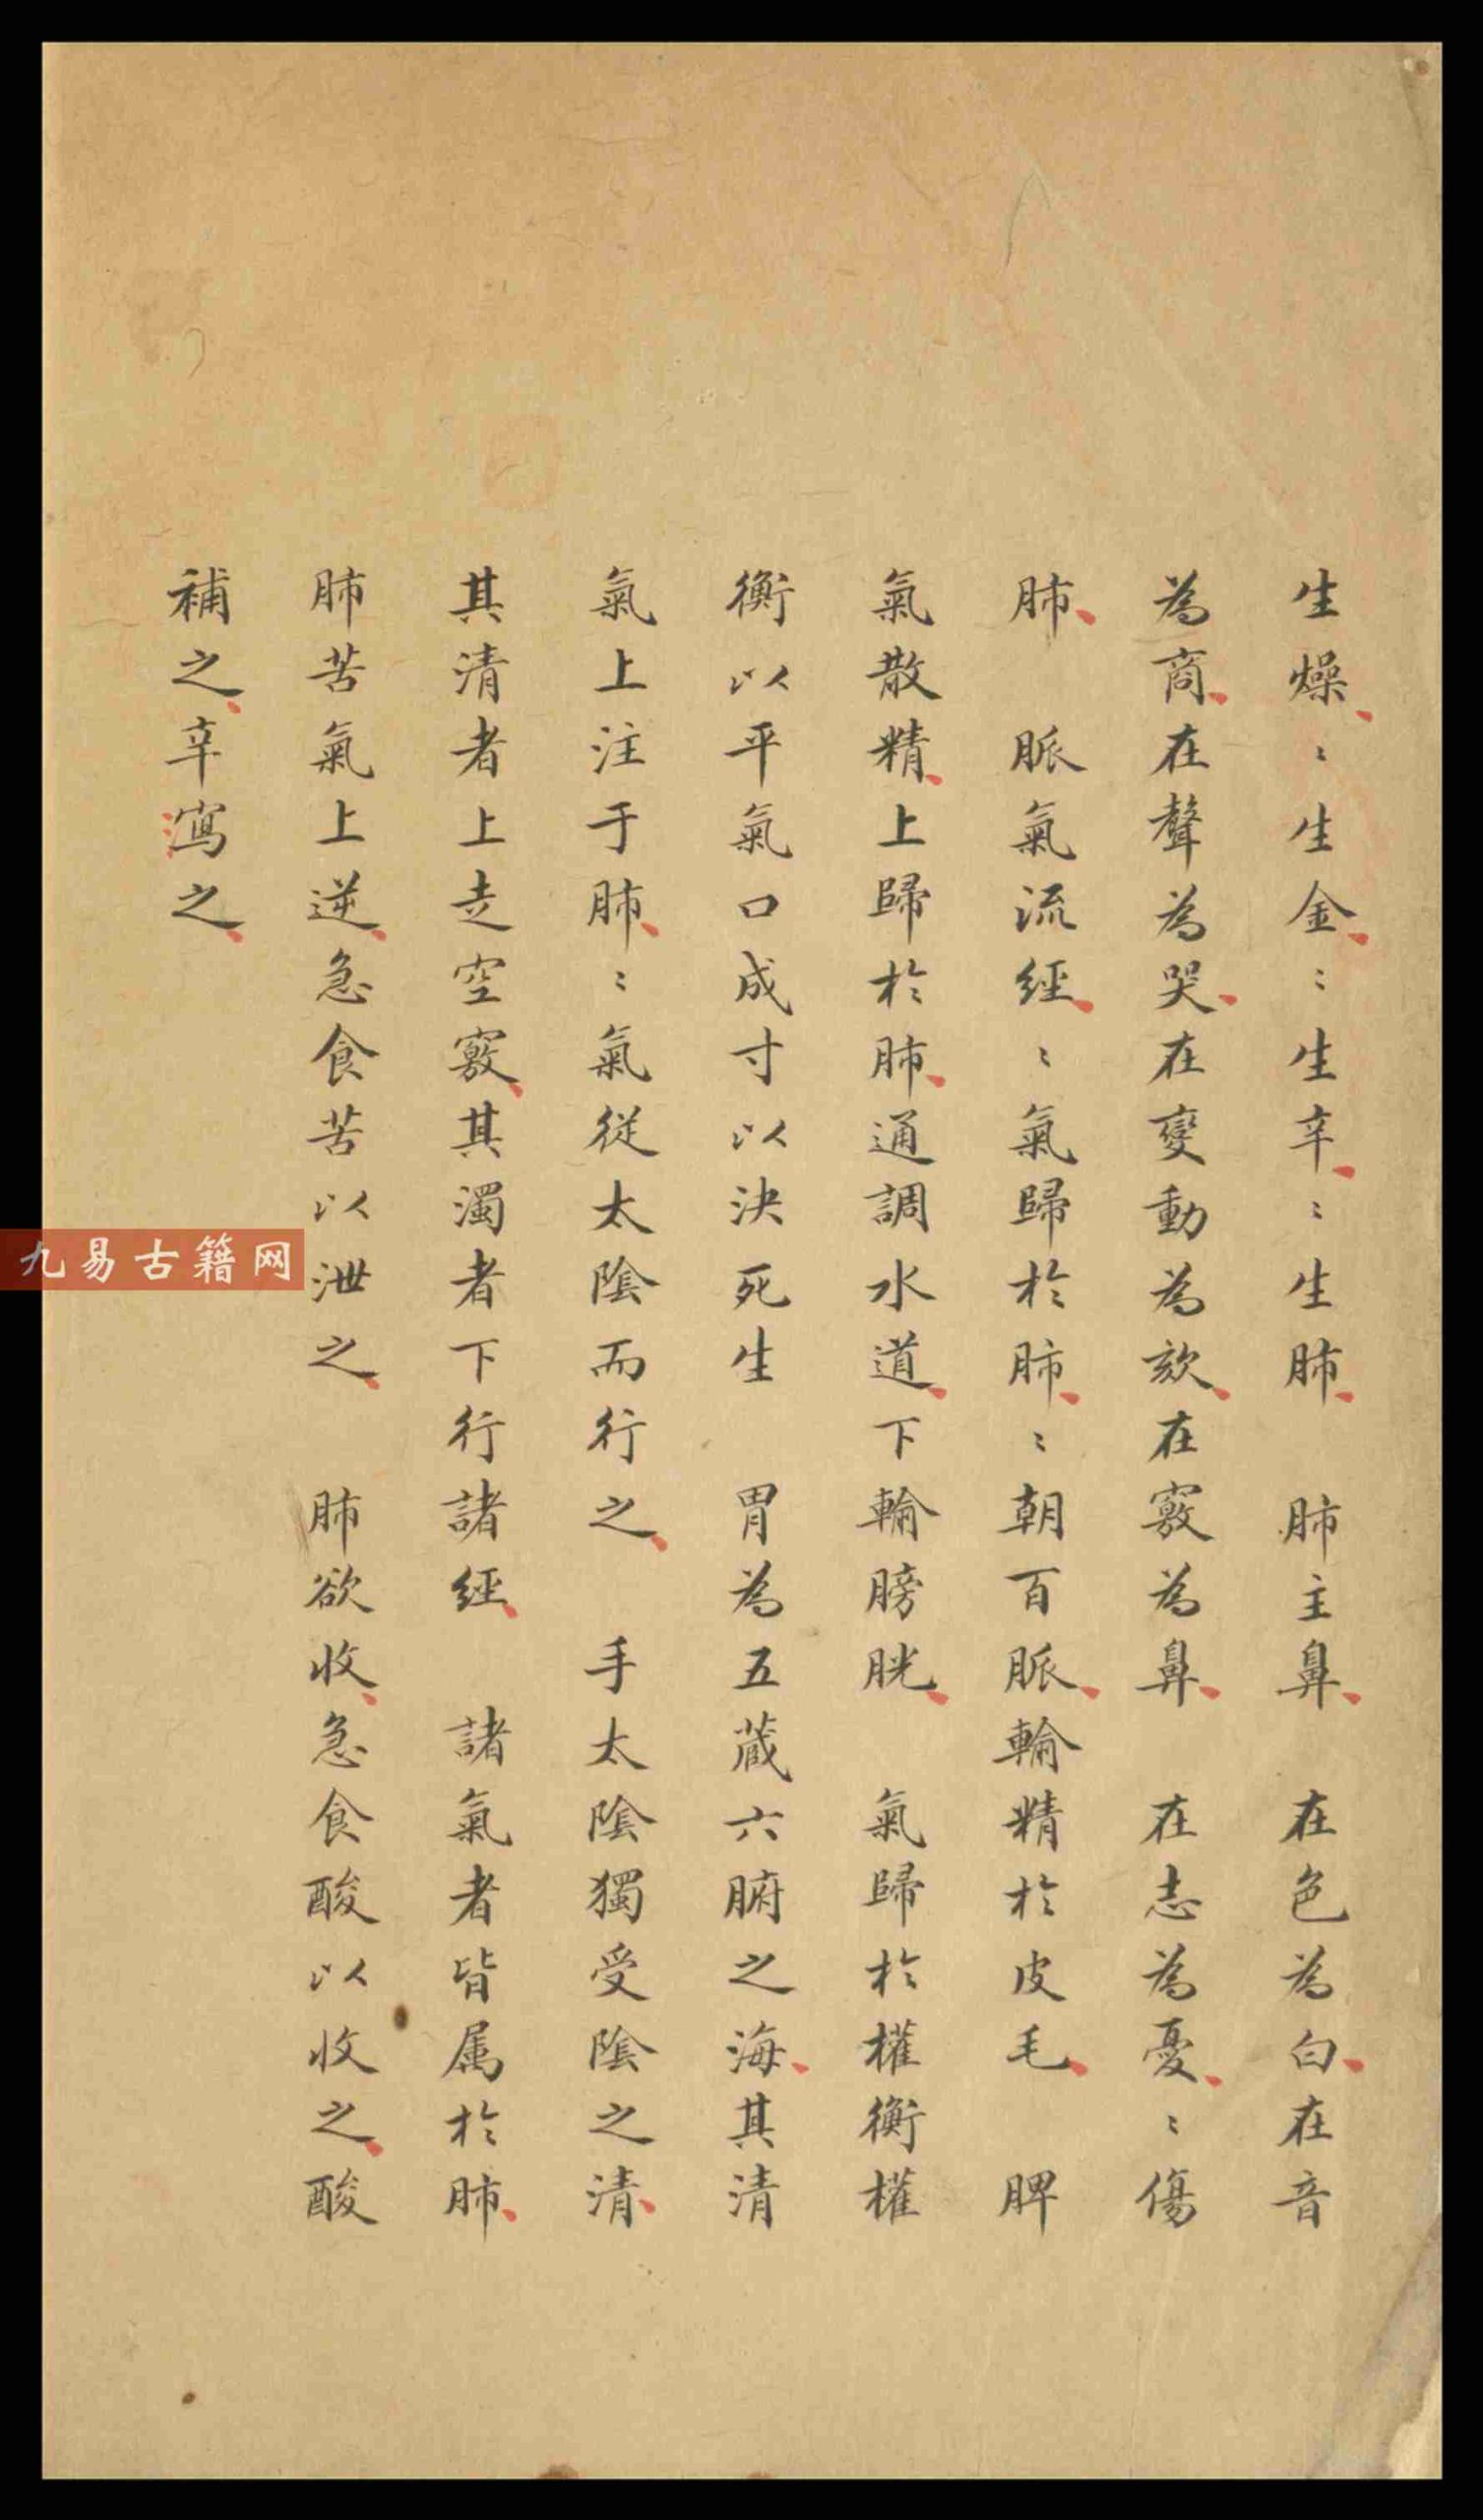 生燥、〻生金、〻生辛、〻生肺、　肺主鼻、　在色為白、在音
為商、在聲為哭、在變動為欬、在竅為鼻、　在志為憂、〻傷
肺、　脈氣流經、〻氣歸於肺、〻朝百脈、輸精於皮毛、　脾
氣散精、上歸於肺、通調水道、下輸膀胱、　氣歸於權衡權
衡以平氣口成寸以決死生　胃為五蔵六腑之海、其清
氣上注于肺、〻氣從太陰而行之、　手太陰獨受陰之清、
其清者上走空竅、其濁者下行諸經、　諸氣者皆属於肺、
肺苦氣上逆、急食苦以泄之、　肺欲收、急食酸以收之、酸
補之、辛瀉之、
九易古籍网